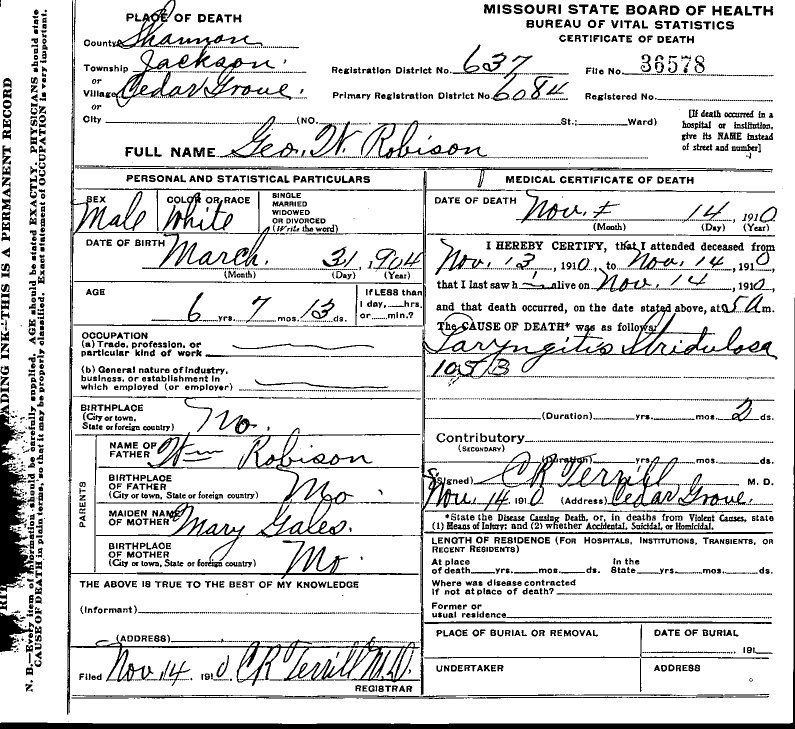 MISSOURI STATE BOARD OF HEALTH
BUREAU OF VITAL STATISTICS
CERTIFICATE OF DEATH
PLACE OF DEATH
County Shannon
Township Jackson
or
Village Cedar Grove.
or
City (NO. St.; Ward)
Registration District No. 637 File No. 36578
Primary Registration District No. 6084 Registered No.
[If death occurred in a
hospital or institution,
give its NAME instead
of street and number]
FULL NAME Geo. W. Robison
PERSONAL AND STATISTICAL PARTICULARS
SEX
Male
COLOR OR RACE
White
SINGLE
MARRIED
WIDOWED
OR DIVORCED
(Write the word)
DATE OF BIRTH
March. 31, 1904
(Month) (Day) (Year)
AGE
6 yrs. 7 mos. 13 ds.
If LESS than
1 day, hrs.
or min.?
OCCUPATION
(a) Trade, profession, or
particular kind of work
(b) General nature of industry,
business, or establishment in
which employed (or employer)
BIRTHPLACE
(City or town,
State or foreign country)
Mo.
PARENTS
NAME OF
FATHER
Wm Robison
BIRTHPLACE
OF FATHER
(City or town, State or foreign country)
Mo.
MAIDEN NAME
OF MOTHER
Mary Gales.
BIRTHPLACE
OF MOTHER
(City or town, State or foreign country)
Mo.
THE ABOVE IS TRUE TO THE BEST OF MY KNOWLEDGE
(Informant)
(ADDRESS)
Filed Nov. 14 1910 CR Terrill M.D.
REGISTRAR
MEDICAL CERTIFICATE OF DEATH
DATE OF DEATH
Nov. 14, 1910
(Month) (Day) (Year)
I HEREBY CERTIFY, that I attended deceased from
Nov. 13, 1910, to Nov. 14, 1910,
that I last saw h alive on Nov. 14, 1910,
and that death occurred, on the date stated above, at 5 A m.
The CAUSE OF DEATH* was as follows:
Laryngitis Stridulosa
(Duration) yrs. mos. 2 ds.
Contributory
(SECONDARY)
(Duration) yrs. mos. ds.
(Signed) CR Terrill M. D.
Nov. 14 1910 (Address) Cedar Grove.
*State the Disease Causing Death, or, in deaths from Violent Causes, state
(1) Means of Injury; and (2) whether Accidental, Suicidal, or Homicidal.
LENGTH OF RESIDENCE (FOR HOSPITALS, INSTITUTIONS, TRANSIENTS, OR
RECENT RESIDENTS)
At place
of death yrs. mos. ds.
In the
State yrs. mos. ds.
Where was disease contracted
if not at place of death?
Former or
usual residence
PLACE OF BURIAL OR REMOVAL
DATE OF BURIAL
, 191
UNDERTAKER
ADDRESS
ADING INK—THIS IS A PERMANENT RECORD
N. B.—Every item of information should be carefully supplied. AGE should be stated EXACTLY. PHYSICIANS should state
CAUSE OF DEATH in plain terms, so that it may be properly classified. Exact statement of OCCUPATION is very important.